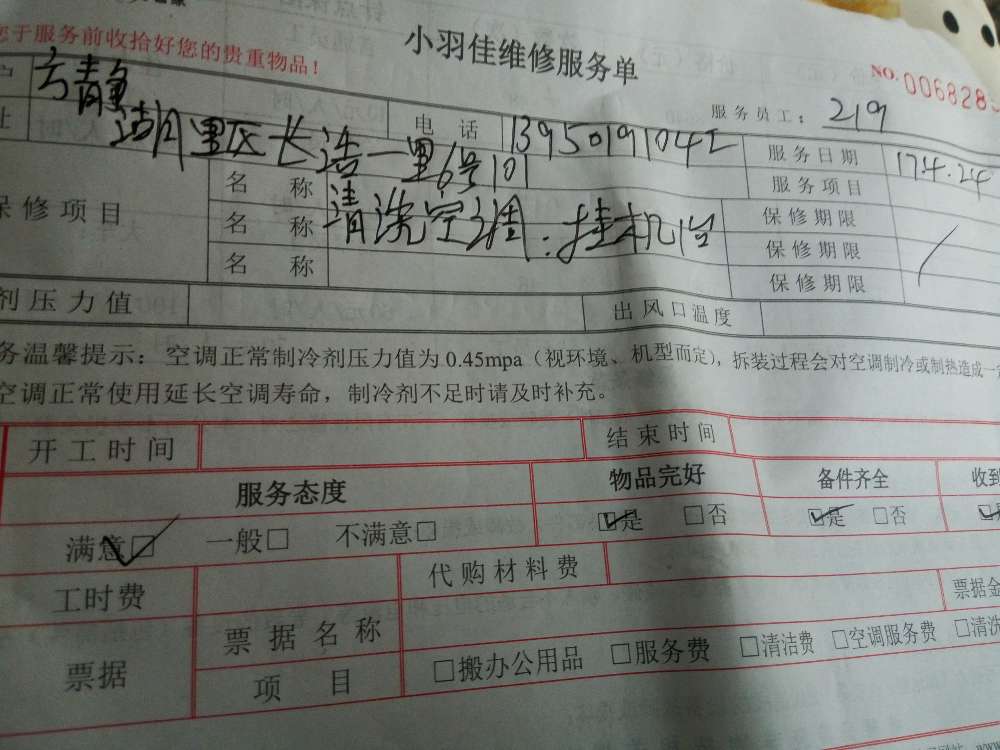 您于服务前收拾好您的贵重物品!
小羽佳维修服务单
NO: 006828
户 方静 服务员工: 219
址 湖里区长浩一里6号101 电话 服务日期 17.4.24
名称 服务项目
保修项目 名称 清洗空调.挂机1台 保修期限 /
名称 保修期限
保修期限
剂压力值 出风口温度
务温馨提示: 空调正常制冷剂压力值为0.45mpa(视环境、机型而定), 拆装过程会对空调制冷或制热造成一定
空调正常使用延长空调寿命, 制冷剂不足时请及时补充。
开工时间 结束时间
服务态度 物品完好 备件齐全 收到
满意☑ 一般□ 不满意□ ☑是 □否 ☑是 □否
工时费 代购材料费
票据 票据名称 票据金
项目 □搬办公用品 □服务费 □清洁费 □空调服务费 □清洗